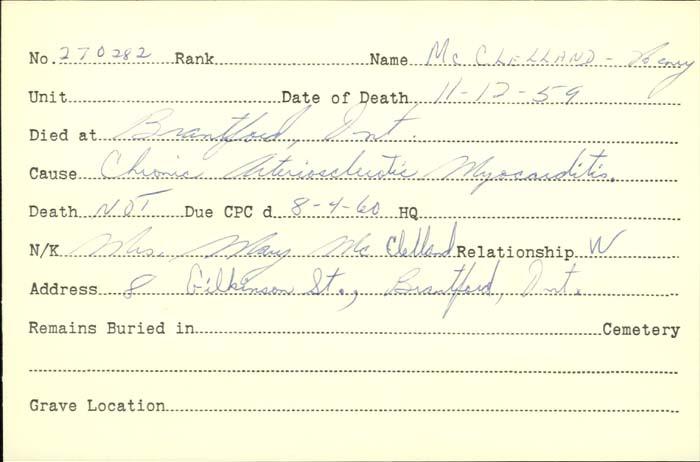 No. 270282 Rank Name McCLELLAND - Henry
Unit Date of Death 11-12-59
Died at Brantford, Ont.
Cause Chronic Arteriosclerotic Myocarditis.
Death NOT Due CPC d 8-4-60 HQ
N/K Mrs. Mary McClelland Relationship W
Address 8 Gilkinson St., Brantford, Ont.
Remains Buried in Cemetery
Grave Location